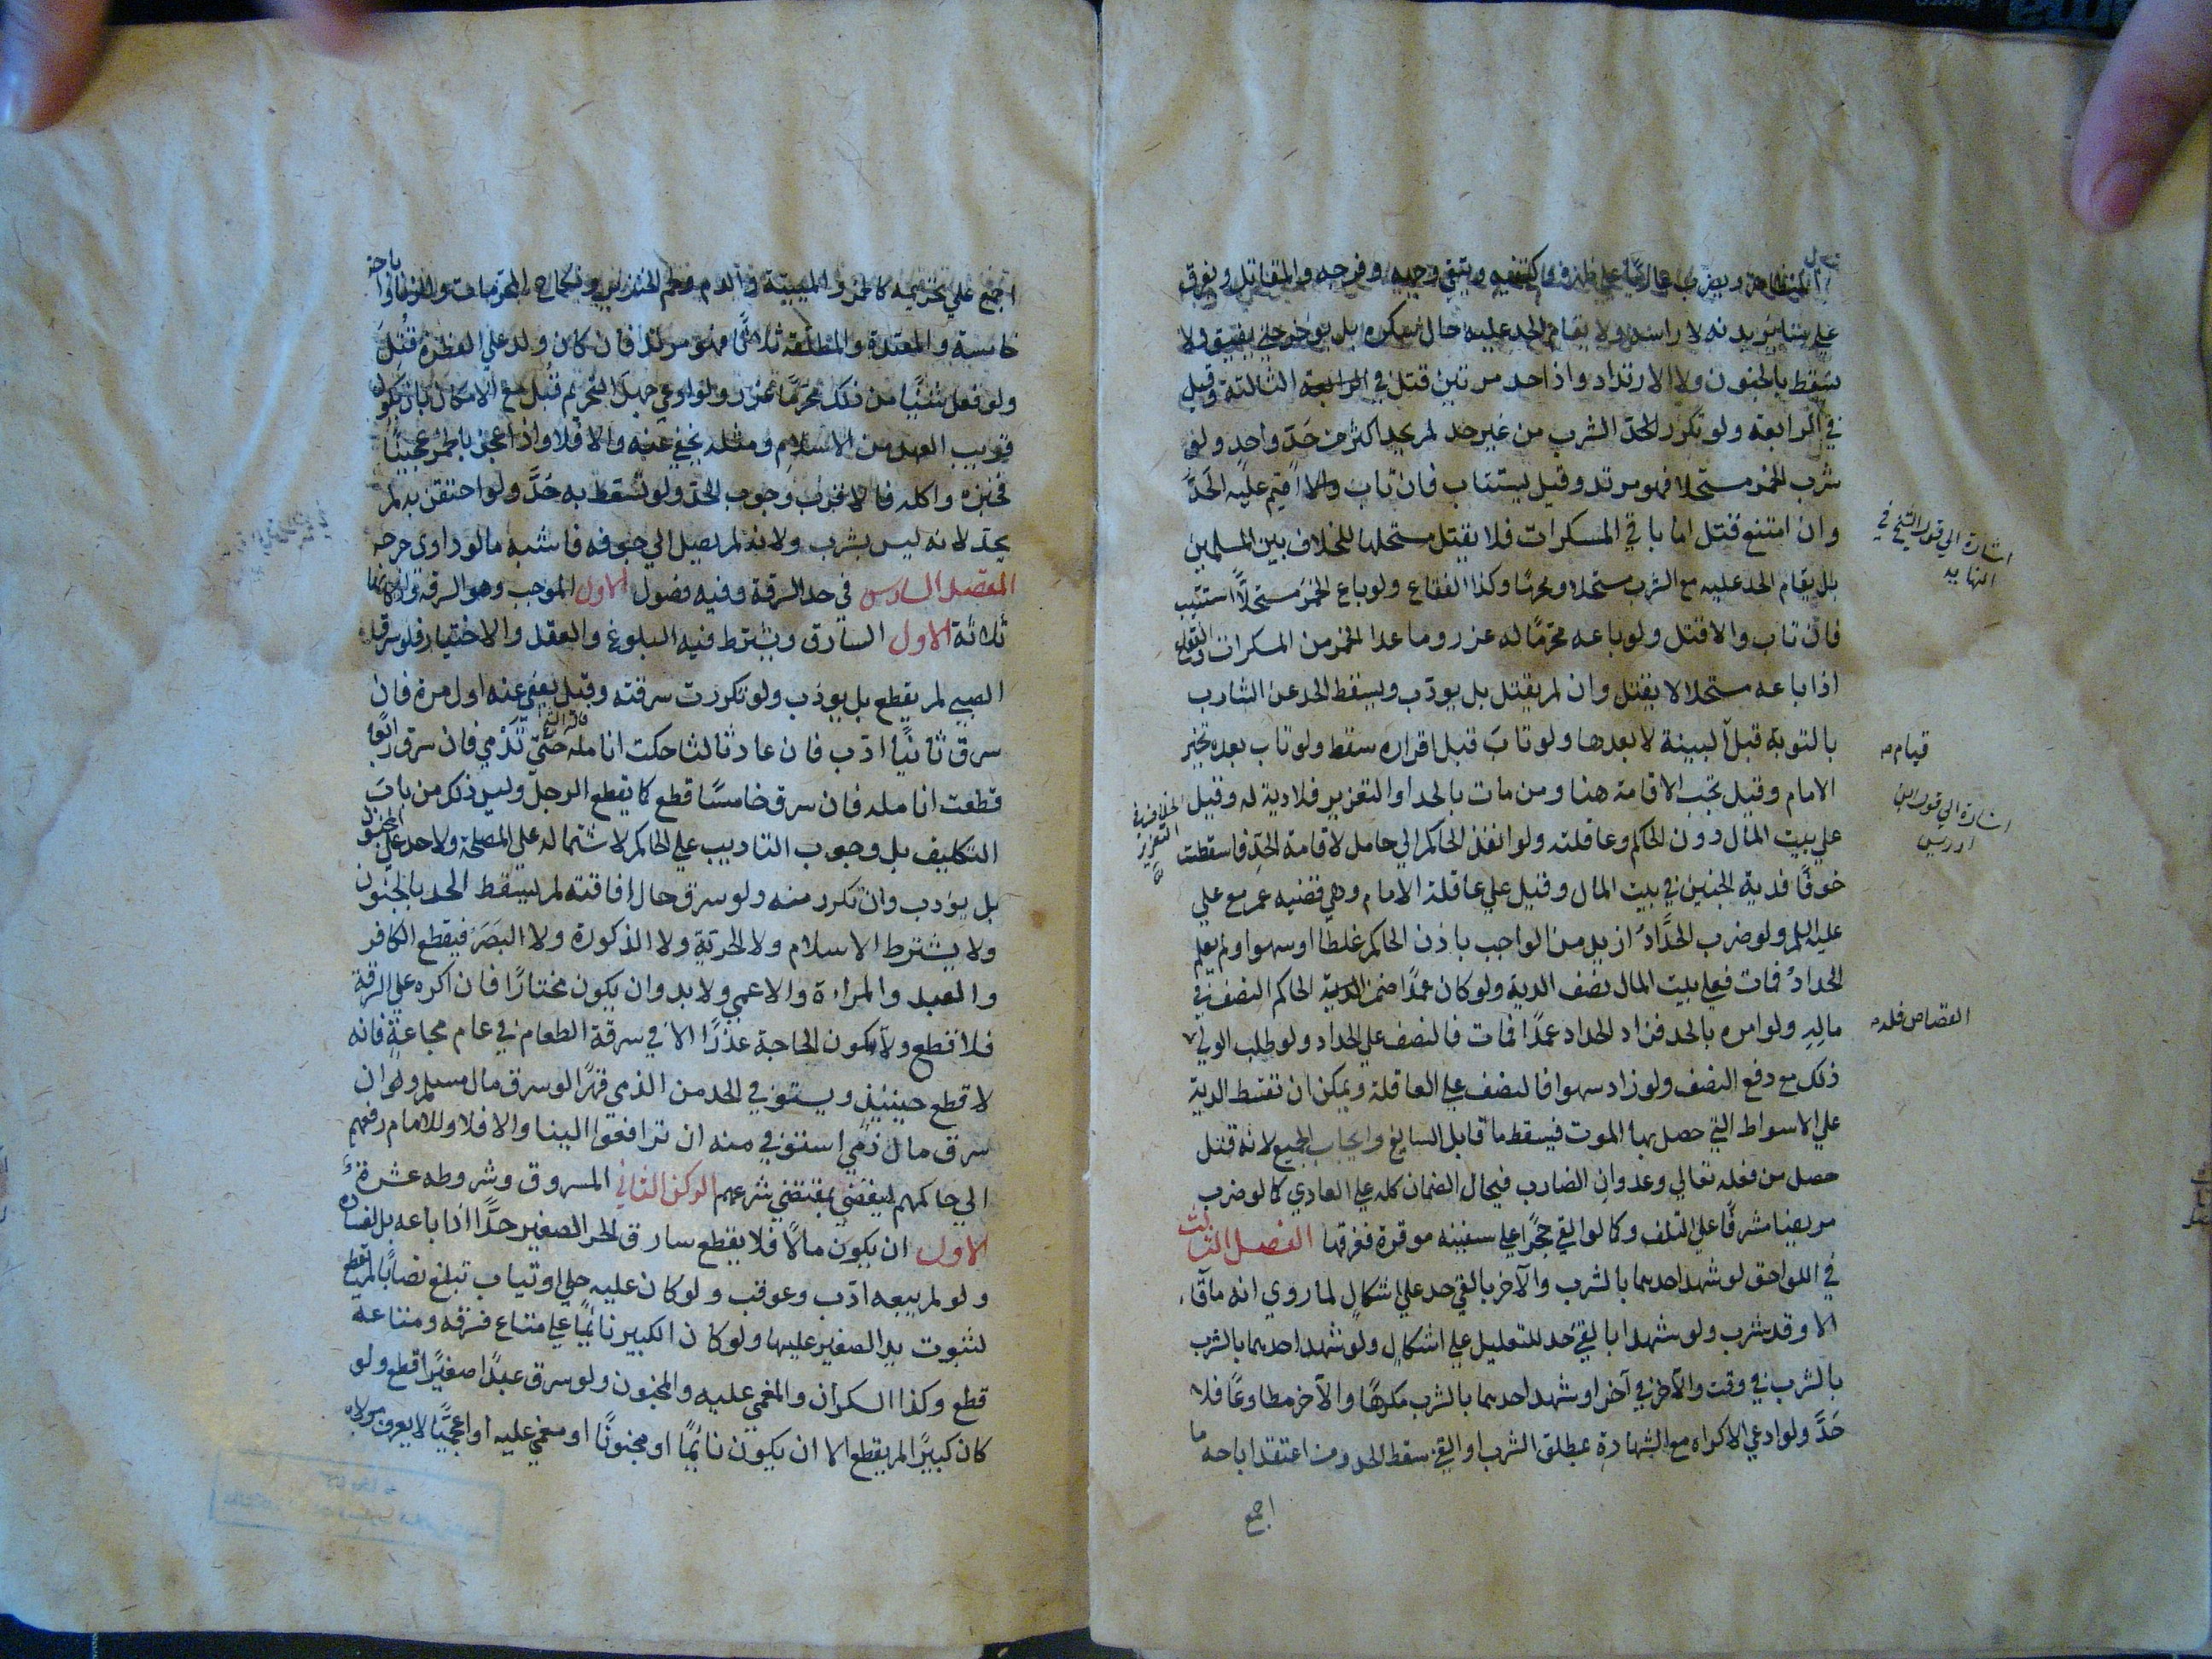 ويضرب عاريا على ظهره وكتفيه ويتقى وجهه وفرجه والمقاتل ويفرق
على سائر بدنه لا راسه ولا يقام الحد عليه حال سكره بل يؤخر حتى يفيق ولا
يسقط بالجنون ولا الارتداد واذا حد مرتين قتل في الثالثة وقيل
في الرابعة ولو تكرر الشرب من غير حد لم يحد اكثر من حد واحد ولو
شرب الخمر مستحلا فهو مرتد وقيل يستتاب فان تاب والا اقيم عليه الحد
وان امتنع قتل اما باقي المسكرات فلا يقتل مستحلها للخلاف بين المسلمين
بل يقام الحد عليه مع الشرب مستحلا ومحرما وكذا الفقاع ولو باع الخمر مستحلا استتيب
فان تاب والا قتل ولو باعه محرما له عزر وما عدا الخمر من المسكرات والفقاع
اذا باعه مستحلا لا يقتل وان لم يقتل بل يودب ويسقط الحد عن الشارب
بالتوبة قبل البينة لا بعدها ولو تاب قبل اقراره سقط ولو تاب بعده تخير
الامام وقيل تجب الاقامة هنا ومن مات بالحد او التعزير فلا دية له وقيل
على بيت المال دون الحاكم وعاقلته ولو انفذ الحاكم الى حامل لاقامة الحد فاسقطت
خوفا فدية الجنين في بيت المال وقيل على عاقلة الامام وهي قضيه عمر مع علي
عليه السلم ولو ضرب الحداد ازيد من الواجب باذن الحاكم غلطا او سهوا ولم يعلم
الحداد فمات فعلى بيت المال نصف الدية ولو كان عمدا ضمن الحاكم النصف في
ماله ولو امره بالحد فزاد الحداد عمدا فمات فالنصف على الحداد ولو طلب الولي
ذلك مع دفع النصف ولو زاد سهوا فالنصف على العاقلة ويمكن ان تقسط الدية
على الاسواط التي حصل بها الموت فيسقط ما قابل السايغ وايجاب الجميع لانه قتل
حصل من فعله تعالى وعدوان الضارب فيحال الضمان كله على العادي كما لو ضرب
مريضا مشرفا على التلف وكما لو القي حجرا على سفينه موقرة فغرقها الفصل الثالث
في اللواحق لو شهد احدهما بالشرب والآخر بالقي حد على اشكال لما روي انه ما قاء
الا وقد شرب ولو شهدا بالقي حد للتعليل على اشكال ولو شهد احدهما بالشرب
بالشرب في وقت والآخر في آخر او شهد احدهما بالشرب مكرها والآخر مطاوعا فلا
حد ولو ادعى الاكراه مع الشهادة بمطلق الشرب او القي سقط الحد ومن اعتقد اباحة ما
اجمع
اشارة الى قول الشيخ في
النهايه
قيام
اشارة الى قول ابن
ادريس
القصاص فله
اجمع على تحريمه كالخمر والميتة والدم ولحم الخنزير ونكاح المحرمات واباحة
خامسة والمعتدة والمطلقة ثلاثا فهو مرتد فان كان ولد على الفطرة قتل
ولو فعل شيئا من ذلك محرما عزر ولو ادعى جهل التحريم قبل مع الامكان بان يكون
قريب العهد من الاسلام ومثله يخفى عنه والا فلا واذا عجن بالخمر عجينا
فخبزه واكله فالاقرب وجوب الحد ولو تسعط به حد ولو احتقن به لم
يحد لانه ليس بشرب ولانه لم يصل الى جوفه فاشبه ما لو داوى جرحه
المقصد السادس في حد السرقة وفيه فصول الاول الموجب وهو السرقة واركانها
ثلاثة الاول السارق ويشترط فيه البلوغ والعقل والاختيار فلو سرق
الصبي لم يقطع بل يودب ولو تكررت سرقته وقيل يعفى عنه اول مرة فان
سرق ثانيا ادب فان عاد ثالثا حكت انامله حتى تدمي فان سرق رابعا
قطعت انامله فان سرق خامسا قطع كما يقطع الرجل وليس ذلك من باب
التكليف بل وجوب التاديب على الحاكم لاشتماله على المصلحة ولا حد على المجنون
بل يودب وان تكرر منه ولو سرق حال افاقته لم يسقط الحد بالجنون
ولا يشترط الاسلام ولا الحرية ولا الذكورة ولا البصر فيقطع الكافر
والعبد والمراة والاعمى ولا بد وان يكون مختارا فان اكره على السرقة
فلا قطع ولا يكون الحاجة عذرا الا في سرقة الطعام في عام مجاعة فانه
لا قطع حينئذ ويستوفي الحد من الذمي قهرا لو سرق مال مسلم ولو ان
سرق مال ذمي استوفي منه ان ترافعوا الينا والا فلا وللامام رفعهم
الى حاكمهم ليقضي بمقتضى شرعهم الركن الثاني المسروق وشروطه عشرة
الاول ان يكون مالا فلا يقطع سارق الحر الصغير حدا اذا باعه بل لفساده
ولو لم يبعه ادب وعوقب ولو كان عليه حلي او ثياب تبلغ نصابا لم يقطع
لثبوت يد الصغير عليها ولو كان الكبير نائما على متاع فسرقه ومتاعه
قطع وكذا السكران والمغمى عليه والمجنون ولو سرق عبدا صغيرا قطع ولو
كان كبيرا لم يقطع الا ان يكون نائما او مجنونا او مغمى عليه او اعجميا لا يعرف مولاه